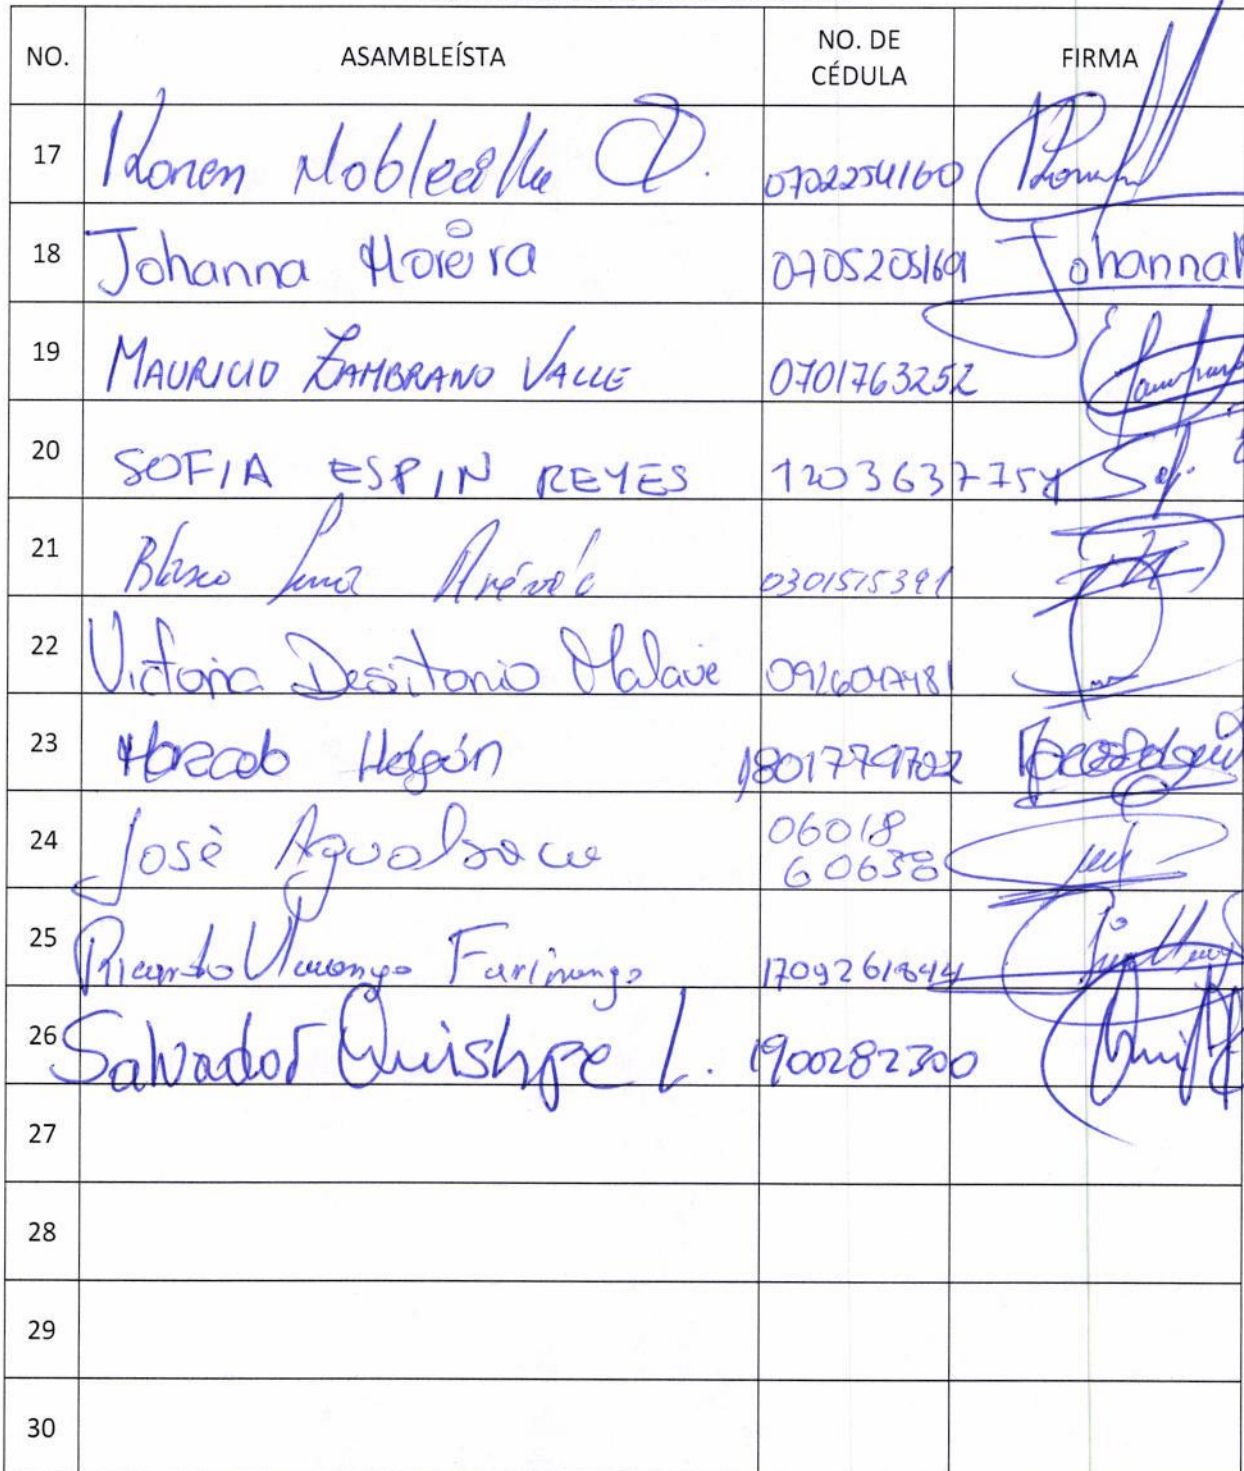 NO. ASAMBLEÍSTA NO. DE CÉDULA FIRMA
17 Karen Noblecilla O. 0702254160
18 Johanna Moreira 0705205169 Johanna
19 MAURICIO ZAMBRANO VALLE 0701763252
20 SOFIA ESPIN REYES 1203637754
21 Blasco Luna Arévalo 0301515391
22 Victoria Desitonio Malave
23 Holguín 1801779702
24 José Agualsaca 06018
60638
25 Ricardo Farinango
26 Salvador Quishpe L. 1900282300
27
28
29
30